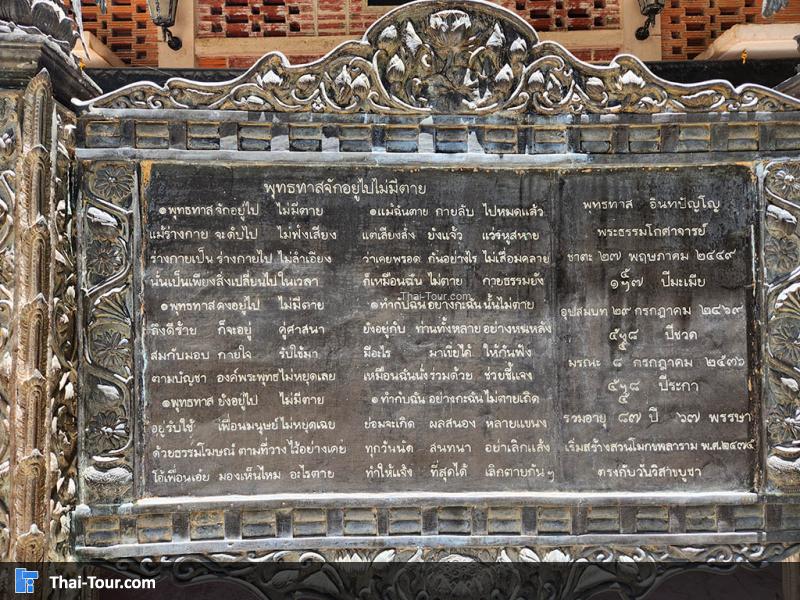 พุทธทาสจักอยู่ไปไม่มีตาย
๑พุทธทาสจักอยู่ไป ไม่มีตาย
แม้ร่างกาย จะดับไป ไม่ฟังเสียง
ร่างกายเป็น ร่างกายไป ไม่ลำเอียง
นั่นเป็นเพียง สิ่งเปลี่ยนไป ในเวลา
๑พุทธทาสคงอยู่ไป ไม่มีตาย
ถึงดีร้าย ก็จะอยู่ คู่ศาสนา
สมกับมอบ กายใจ รับใช้มา
ตามบัญชา องค์พระพุทธ ไม่หยุดเลย
๑พุทธทาส ยังอยู่ไป ไม่มีตาย
อยู่รับใช้ เพื่อนมนุษย์ ไม่หยุดเฉย
ด้วยธรรมโฆษณ์ ตามที่วาง ไว้อย่างเคย
โอ้เพื่อนเอ๋ย มองเห็นไหม อะไรตาย
๑แม้ฉันตาย กายลับ ไปหมดแล้ว
แต่เสียงสั่ง ยังแจ้ว แว่วหูสหาย
ว่าเคยพรอด กันอย่างไร ไม่เสื่อมคลาย
ก็เหมือนฉัน ไม่ตาย กายธรรมยัง
๑ทำกับฉัน อย่างกะฉัน นั้นไม่ตาย
ยังอยู่กับ ท่านทั้งหลาย อย่างหนหลัง
มีอะไร มาเขี่ยไค้ ให้กันฟัง
เหมือนฉันนั่ง ร่วมด้วย ช่วยชี้แจง
๑ทำกับฉัน อย่างกะฉัน ไม่ตายเถิด
ย่อมจะเกิด ผลสนอง หลายแขนง
ทุกวันนัด สนทนา อย่าเลิกแล้ง
ทำให้แจ้ง ที่สุดได้ เลิกตายกันฯ
พุทธทาส อินทปัญโญ
พระธรรมโกศาจารย์
ชาตะ ๒๗ พฤษภาคม ๒๔๔๙
ปีมะเมีย
อุปสมบท ๒๙ กรกฎาคม ๒๔๖๙
ปีขวด
มรณะ ๘ กรกฎาคม ๒๕๓๖
ปีระกา
รวมอายุ ๘๗ ปี ๖๗ พรรษา
เริ่มสร้างสวนโมกขพลาราม พ.ศ.๒๔๗๕
ตรงกับวันวิสาขบูชา
Thai-Tour.com
Thai-Tour.com